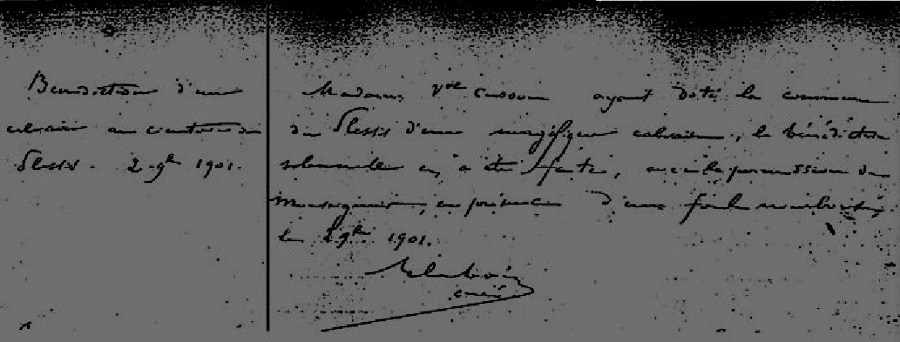 Bénédiction d'un
calvaire au cimetière du
Plessis. 2 9bre 1901.
Madame Vve Cusson ayant doté la commune
du Plessis d'un magnifique calvaire, la bénédiction
solennelle en a été faite, avec la permission de
Monseigneur, en présence d'une foule
le 2 9bre 1901.
curé